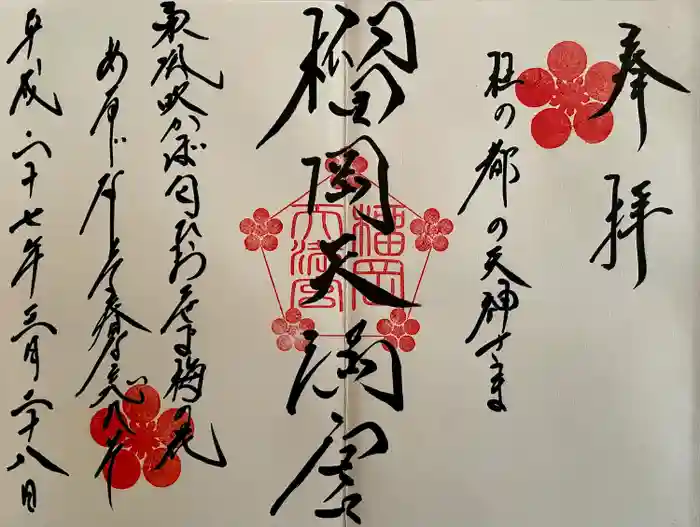 奉拝
杜の都の天神さま
榴岡天満宮
東風吹かば匂ひおこせよ梅の花
あるじなしとて春な忘れそ
平成二十七年三月二十八日